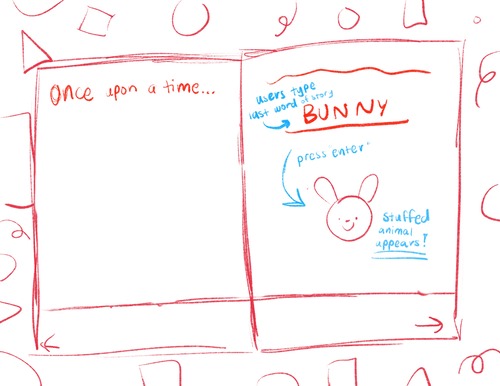 Once upon a time...
users type
last word of story
BUNNY
press enter
stuffed
animal
appears!